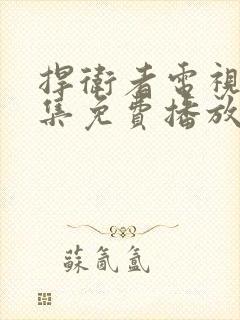 捍衛者電視
集免費播放
蘇氤氳